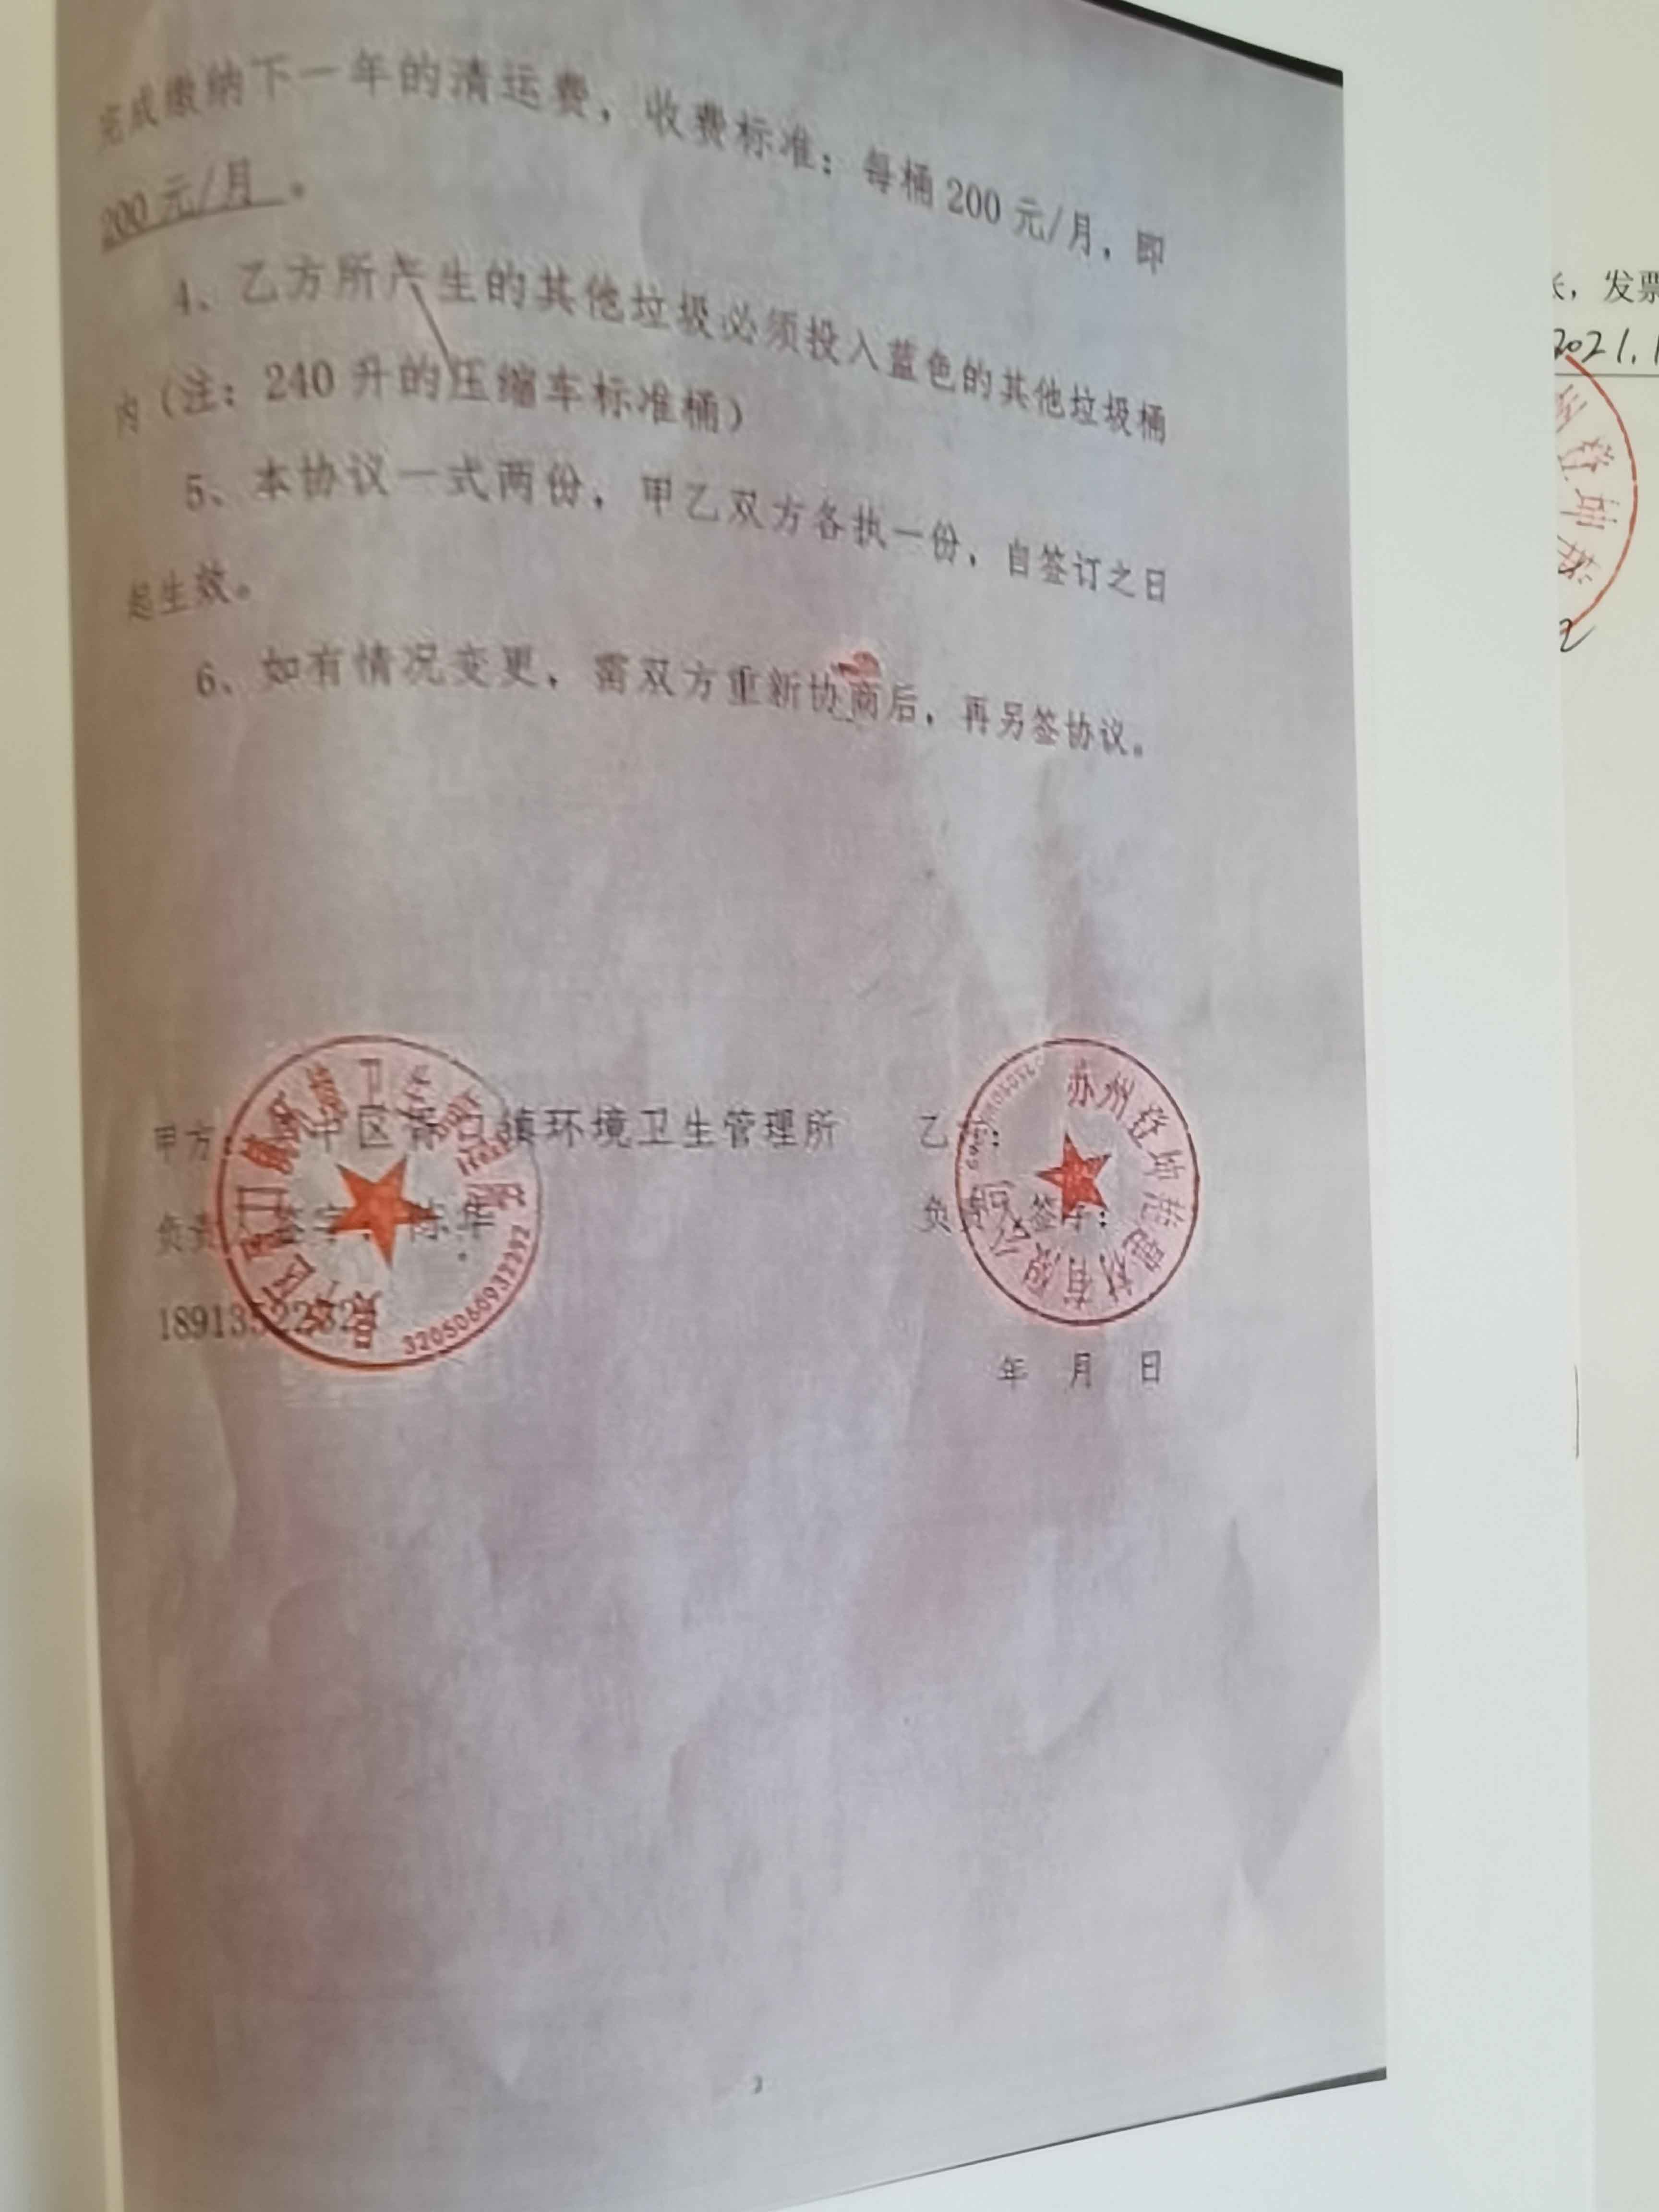 完成缴纳下一年的清运费，收费标准：每桶200元/月，即
200元/月 。
4、乙方所产生的其他垃圾必须投入蓝色的其他垃圾桶
内（注：240升的压缩车标准桶）
5、本协议一式两份，甲乙双方各执一份，自签订之日
起生效。
6、如有情况变更，需双方重新协商后，再另签协议。
甲方 中区 镇环境卫生管理所
乙 ：
负责 签字： 陈华
负责 签字：
年 月 日
区 口镇环境卫生管理所
3205060932292
苏州登坤 建材有限公司
，发票
2021.1
州登坤